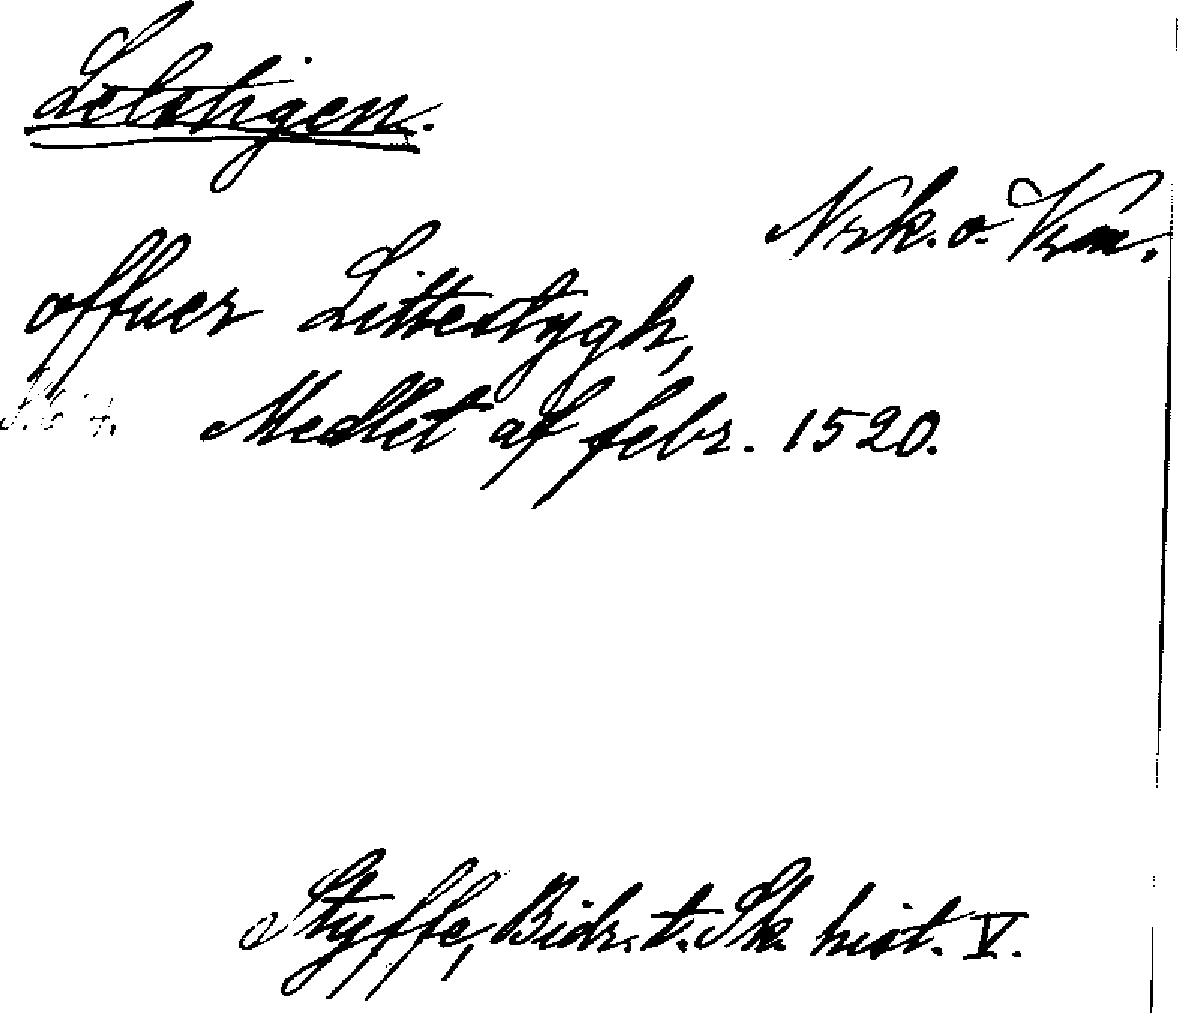 Letstigen.
Nrk. o. Vrm.
offuer Littestygh,
Medlet af febr. 1520.
Styffe, Bidr. t. Sk. hist. V.